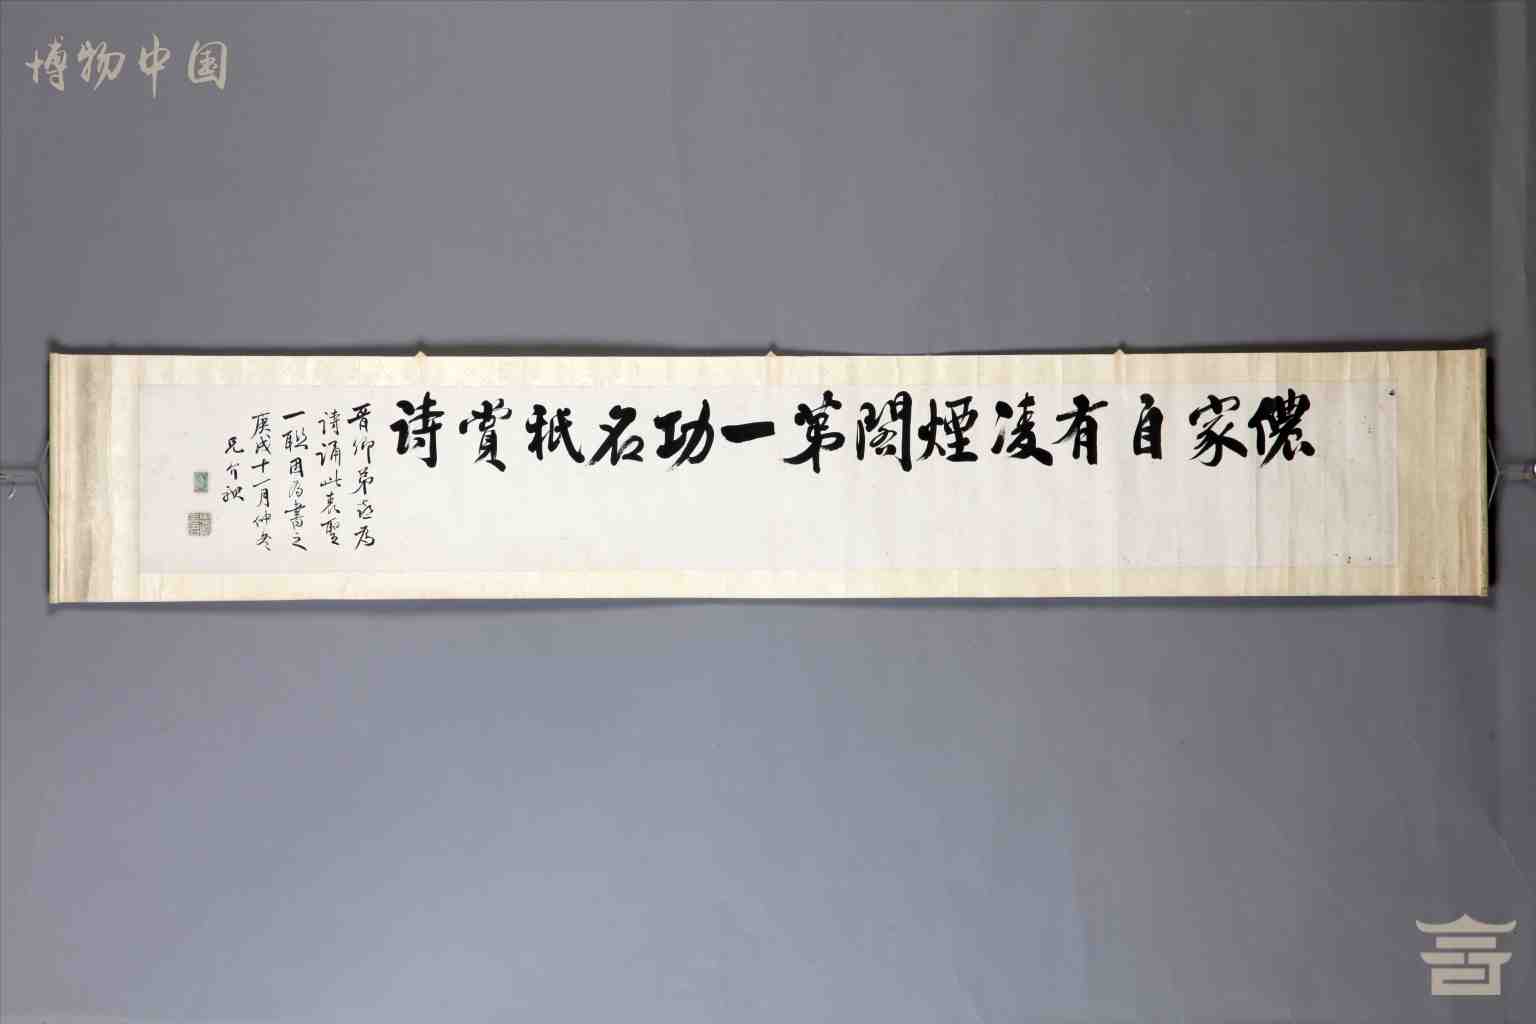 博物中国
儂家自有凌煙閣第一功名祇賞詩
晋仰弟喜為
詩誦此袁聖
一聯因為書之
庚戌十一月仲冬
兄介祺